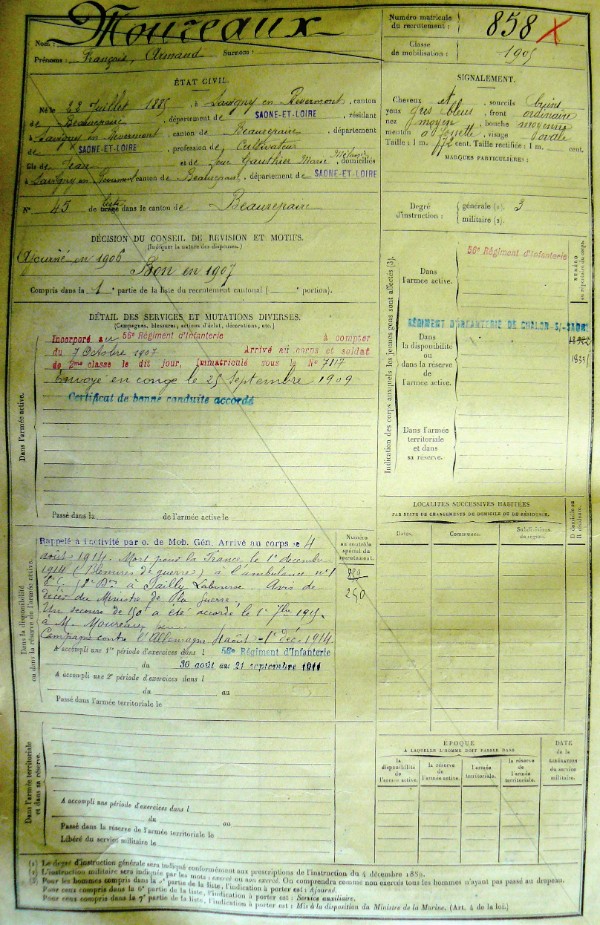 Moureaux
Nom :
Prénoms : François, Armand Surnom :
Numéro matricule
du recrutement :
858
Classe
de mobilisation :
1905
ÉTAT CIVIL.
Né le 22 Juillet 1885, à Savigny en Revermont, canton
de Beaurepaire, département de SAONE-ET-LOIRE, résidant
à Savigny en Revermont, canton de Beaurepaire, département
de SAONE-ET-LOIRE, profession de Cultivateur
fils de Jean et de Gauthier Marie, domiciliés
à Savigny en Revermont, canton de Beaurepaire, département de SAONE-ET-LOIRE
N° 45 de liste dans le canton de Beaurepaire
SIGNALEMENT.
Cheveux et sourcils bruns
yeux gris bleus, front ordinaire
nez moyen, bouche moyenne
menton à fossette, visage ovale
Taille : 1 m. 72 cent. Taille rectifiée : 1 m. cent.
MARQUES PARTICULIÈRES :
Degré
d'instruction :
générale (1). 3
militaire (2).
DÉCISION DU CONSEIL DE RÉVISION ET MOTIFS.
Ajourné en 1906 Bon en 1907
Compris dans la 1e partie de la liste du recrutement cantonal ( portion).
DÉTAIL DES SERVICES ET MUTATIONS DIVERSES.
(Campagnes, blessures, actions d'éclat, décorations, etc.)
Incorporé au 56e Régiment d'Infanterie à compter
du 7 Octobre 1907 Arrivé au corps et soldat
de 2ème classe le dit jour, immatriculé sous le N° 7117
Envoyé en congé le 25 Septembre 1909
Certificat de bonne conduite accordé
Dans l'armée active.
Passé dans la de l'armée active le
Indication des corps auxquels les jeunes gens sont affectés (3).
Dans
l'armée active.
56e Régiment d'Infanterie
RÉGIMENT D'INFANTERIE DE CHALON S/-SAONE
Dans
la disponibilité
ou dans
la réserve
de
l'armée active.
Dans l'armée
territoriale
et dans
sa réserve.
LOCALITÉS SUCCESSIVES HABITÉES
PAR SUITE DE CHANGEMENTS DE DOMICILE OU DE RÉSIDENCE.
Dates.
Communes.
Subdivisions
de région.
D. domicile ou
R. résidence.
Dans la disponibilité
ou dans la réserve de l'armée active.
Rappelé à l'activité par o. de Mob. Gén. Arrivé au corps le 4
août 1914. Mort pour la France le 1er décembre
1914 (blessures de guerre) à l'ambulance n° 1
à Sailly Labourse Avis de
décès du Ministre de la guerre.
Un secours de 150f a été accordé le 1er 7bre 1915
à M. Moureaux
Campagne contre l'Allemagne août - 1er déc. 1914
Numéro
au contrôle
spécial du
recrutement.
250
A accompli une 1re période d'exercices dans l 56e Régiment d'Infanterie
du 30 août au 21 septembre 1911
A accompli une 2e période d'exercices dans l
du au
Passé dans l'armée territoriale le
ÉPOQUE
À LAQUELLE L'HOMME DOIT PASSER DANS
la
disponibilité
de
l'armée active.
la réserve
de
l'armée active.
l'armée
territoriale.
la réserve
de
l'armée
territoriale.
DATE
de la
LIBÉRATION
du service
militaire.
Dans l'armée territoriale
et dans sa réserve.
A accompli une période d'exercices dans l
du au
Passé dans la réserve de l'armée territoriale le
Libéré du service militaire le
(1) Le degré d'instruction générale sera indiqué conformément aux prescriptions de l'instruction du 4 décembre 1889.
(2) L'instruction militaire sera indiquée par les mots : exercé ou non exercé. On comprendra comme non exercés tous les hommes n'ayant pas passé au drapeau.
Pour ceux compris dans la 6e partie de la liste, l'indication à porter est : Service auxiliaire.
Pour ceux compris dans la 7e partie de la liste, l'indication à porter est : Mis à la disposition du Ministre de la Marine. (Art. 4 de la loi.)